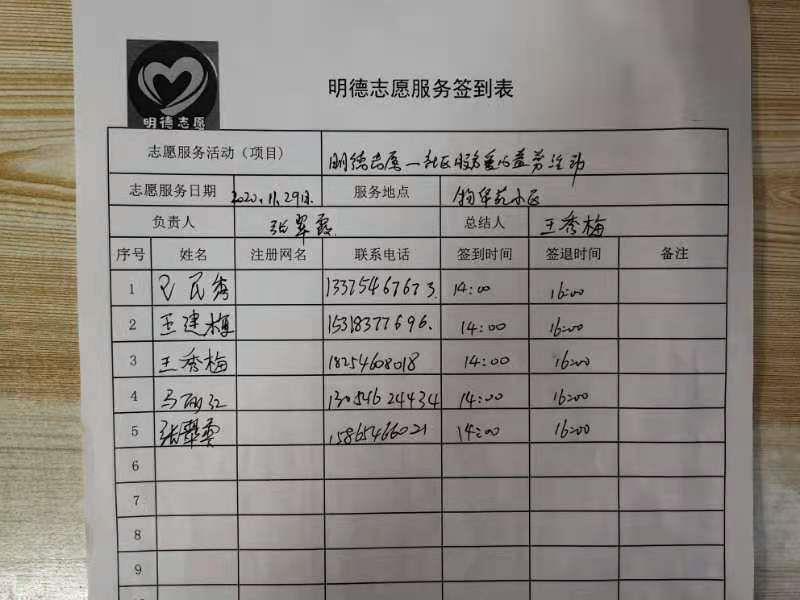 明德志愿
明德志愿服务签到表
志愿服务活动（项目） 明德志愿—社区服务爱心益劳活动
志愿服务日期 2020.11.29日. 服务地点 小区
负责人 张翠霞 总结人 王秀梅
序号 姓名 注册网名 联系电话 签到时间 签退时间 备注
1 民秀 13375467673. 14:00 16:00
2 王建梅 15318377696. 14:00 16:00
3 王秀梅 18254608018 14:00 16:00
4 马丽红 13054624434 14:00 16:00
5 张翠霞 15865466021 14:00 16:00
6
7
8
9